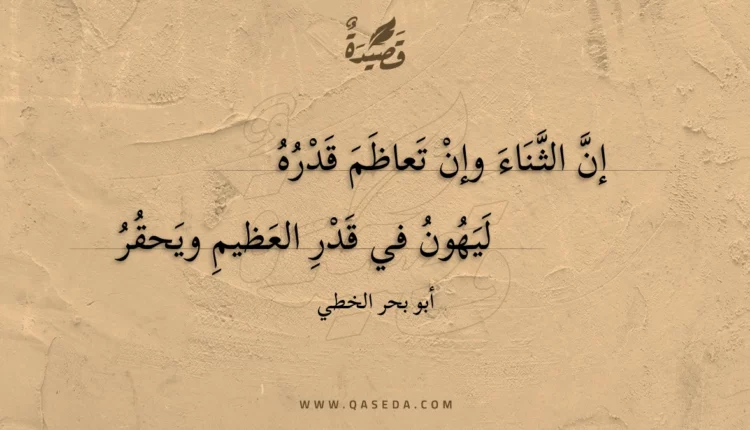 قَصِيدَةٌ
إنَّ الثَّنَاءَ وإنْ تَعاظَمَ قَدْرُهُ
لَيَهُونُ في قَدْرِ العَظيمِ ويَحقُرُ
أبو بحر الخطي
WWW.QASEDA.COM